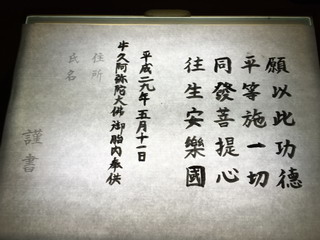 願以此功德
平等施一切
同發菩提心
往生安樂國
平成二九年五月十一日
牛久阿弥陀大佛御胎内奉供
住所
氏名
謹書